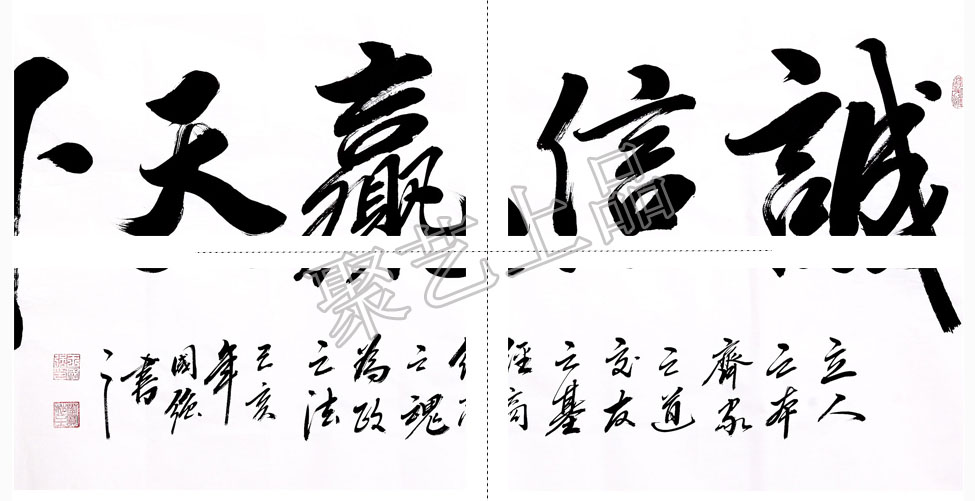 誠信贏天下
立人
之本
齊家
之道
交友
之基
經商
之魂
為政
之法
己亥
年
國強
書
聚艺上品